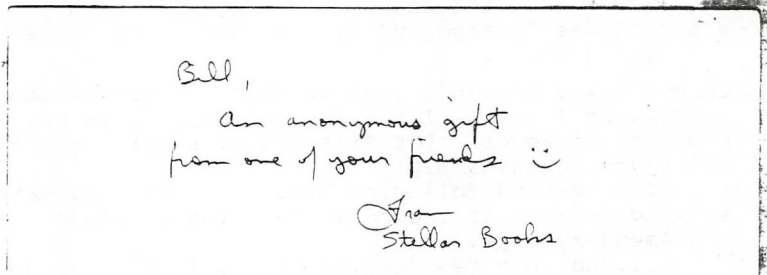 Bill,
An anonymous gift
from one of your friends :)
Fran
Stellar Books